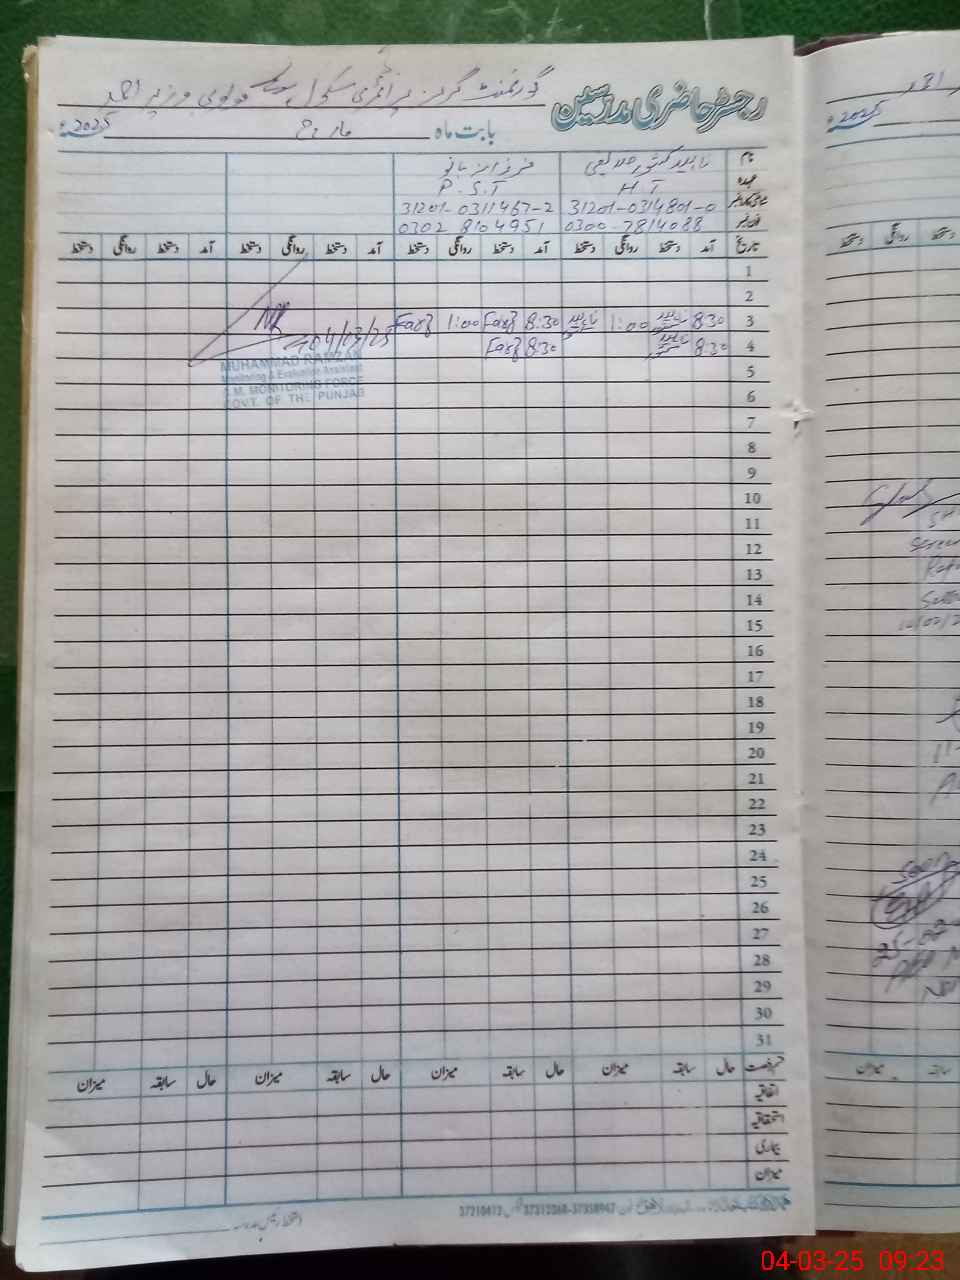 رجسٹر حاضری مدرسین گورنمنٹ گرلز پرائمری سکول بستی مولوی وزیر احمد
بابت ماہ مارچ 2025ء
نام ناہید کشور صدیقی فرزانہ بانو
عہدہ H T P.S.T
شناختی کارڈ نمبر 31201-0314801-0 31201-0311467-2
فون نمبر 0300-7814088 0302 8104951
تاریخ آمد دستخط روانگی دستخط آمد دستخط روانگی دستخط آمد دستخط روانگی دستخط آمد دستخط روانگی دستخط
1
2
3 8.30 ناہید 1:00 ناہید 8.30 Farz 1:00 Farz
4 8.30 ناہید 8.30 Farz
04/03/25
MUHAMMAD RAMZAN
Monitoring & Evaluation Assistant
C.M. MONITORING FORCE
GOVT. OF THE PUNJAB
5
6
7
8
9
10
11
12
13
14
15
16
17
18
19
20
21
22
23
24
25
26
27
28
29
30
31
قسم رخصت حال سابقہ میزان حال سابقہ میزان حال سابقہ میزان حال سابقہ میزان
اتفاقیہ
استحقاقیہ
بیماری
میزان
37312068-37358967 37210472
دستخط رئیس مدرسہ
احمد
2025ء
دستخط روانگی دستخط
10/02/2
25-02-
سابقہ میزان
04-03-25 09:23